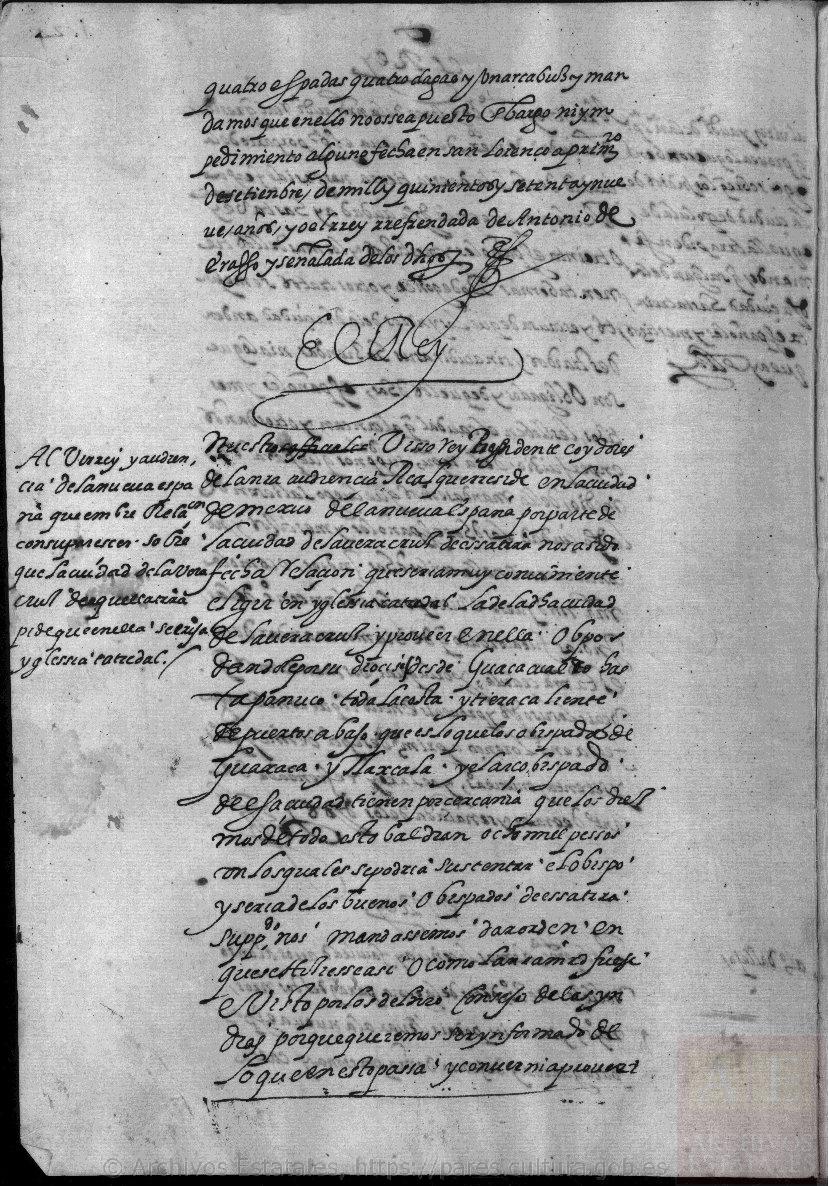 quatro espadas quatro dagas y un arcabuz y man
damos que en ello no os sea puesto Embargo ni ym
pedimiento alguno fecha en san Lorenco a prim.ro
de setienbre de mill y quinientos y setenta y nue
ve años yo el rrey rrefrendada de Antonio de
Erasso y señalada de los dhos
El Rey
Al Virrey y audien
cia de la nueva espa
ña que embie Relaon
con su parescer sobre
que la ciudad de la Vera
cruz de aquella tierra
pide que en ella se erija
yglessia catedral.
Nuestro Visso rey Presidente e oydores
de la nra audiencia Real que reside en la ciudad
de mexico de la nueva España por parte de
la ciudad de la veracruz de essa tierra nos a sido
fecha Relacion que seria muy conviniente
eligir en yglessia catredal la de la dha ciudad
de la veracruz y proveer en ella Obpo
dandole por su diocesi desde Guacacualco has
ta panuco toda la costa y tierra caliente
de puertos abajo que es lo que los obispados de
Guaxaca y Tlaxcala y el arcobispado
de essa ciudad tienen por cercania que los diez
mos de todo esto baldran ocho mil pessos
con los quales se podria sustentar el obispo
y seria de los buenos Obispados de essa tierra
suppdo nos mandassemos dar orden en
que se hiziesse asi O como la nra mrd fuese
e Visto por los del nro Consejo de las yn
dias porque queremos ser ynformado de
lo que en esto passa y convernia proveer
© Archivos Estatales, https://pares.cultura.gob.es